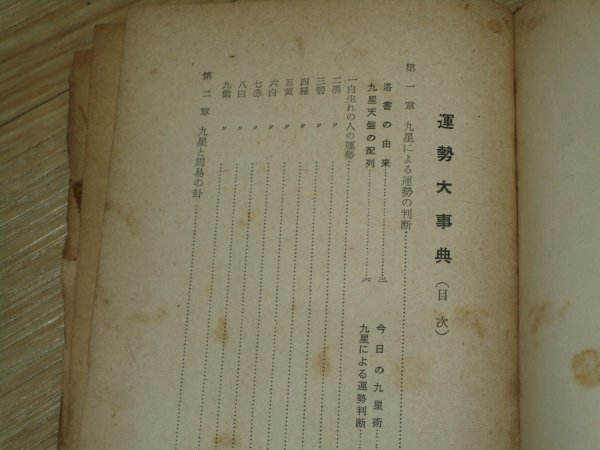 運勢大事典(目次)
第一章 九星による運勢の判断
洛書の由来 三
九星天盤の配列 六
今日の九星術
九星による運勢判断
一白生れの人の運勢
二黒 〃
三碧 〃
四緑 〃
五黄 〃
六白 〃
七赤 〃
八白 〃
九紫 〃
第二章 九星と周易の卦